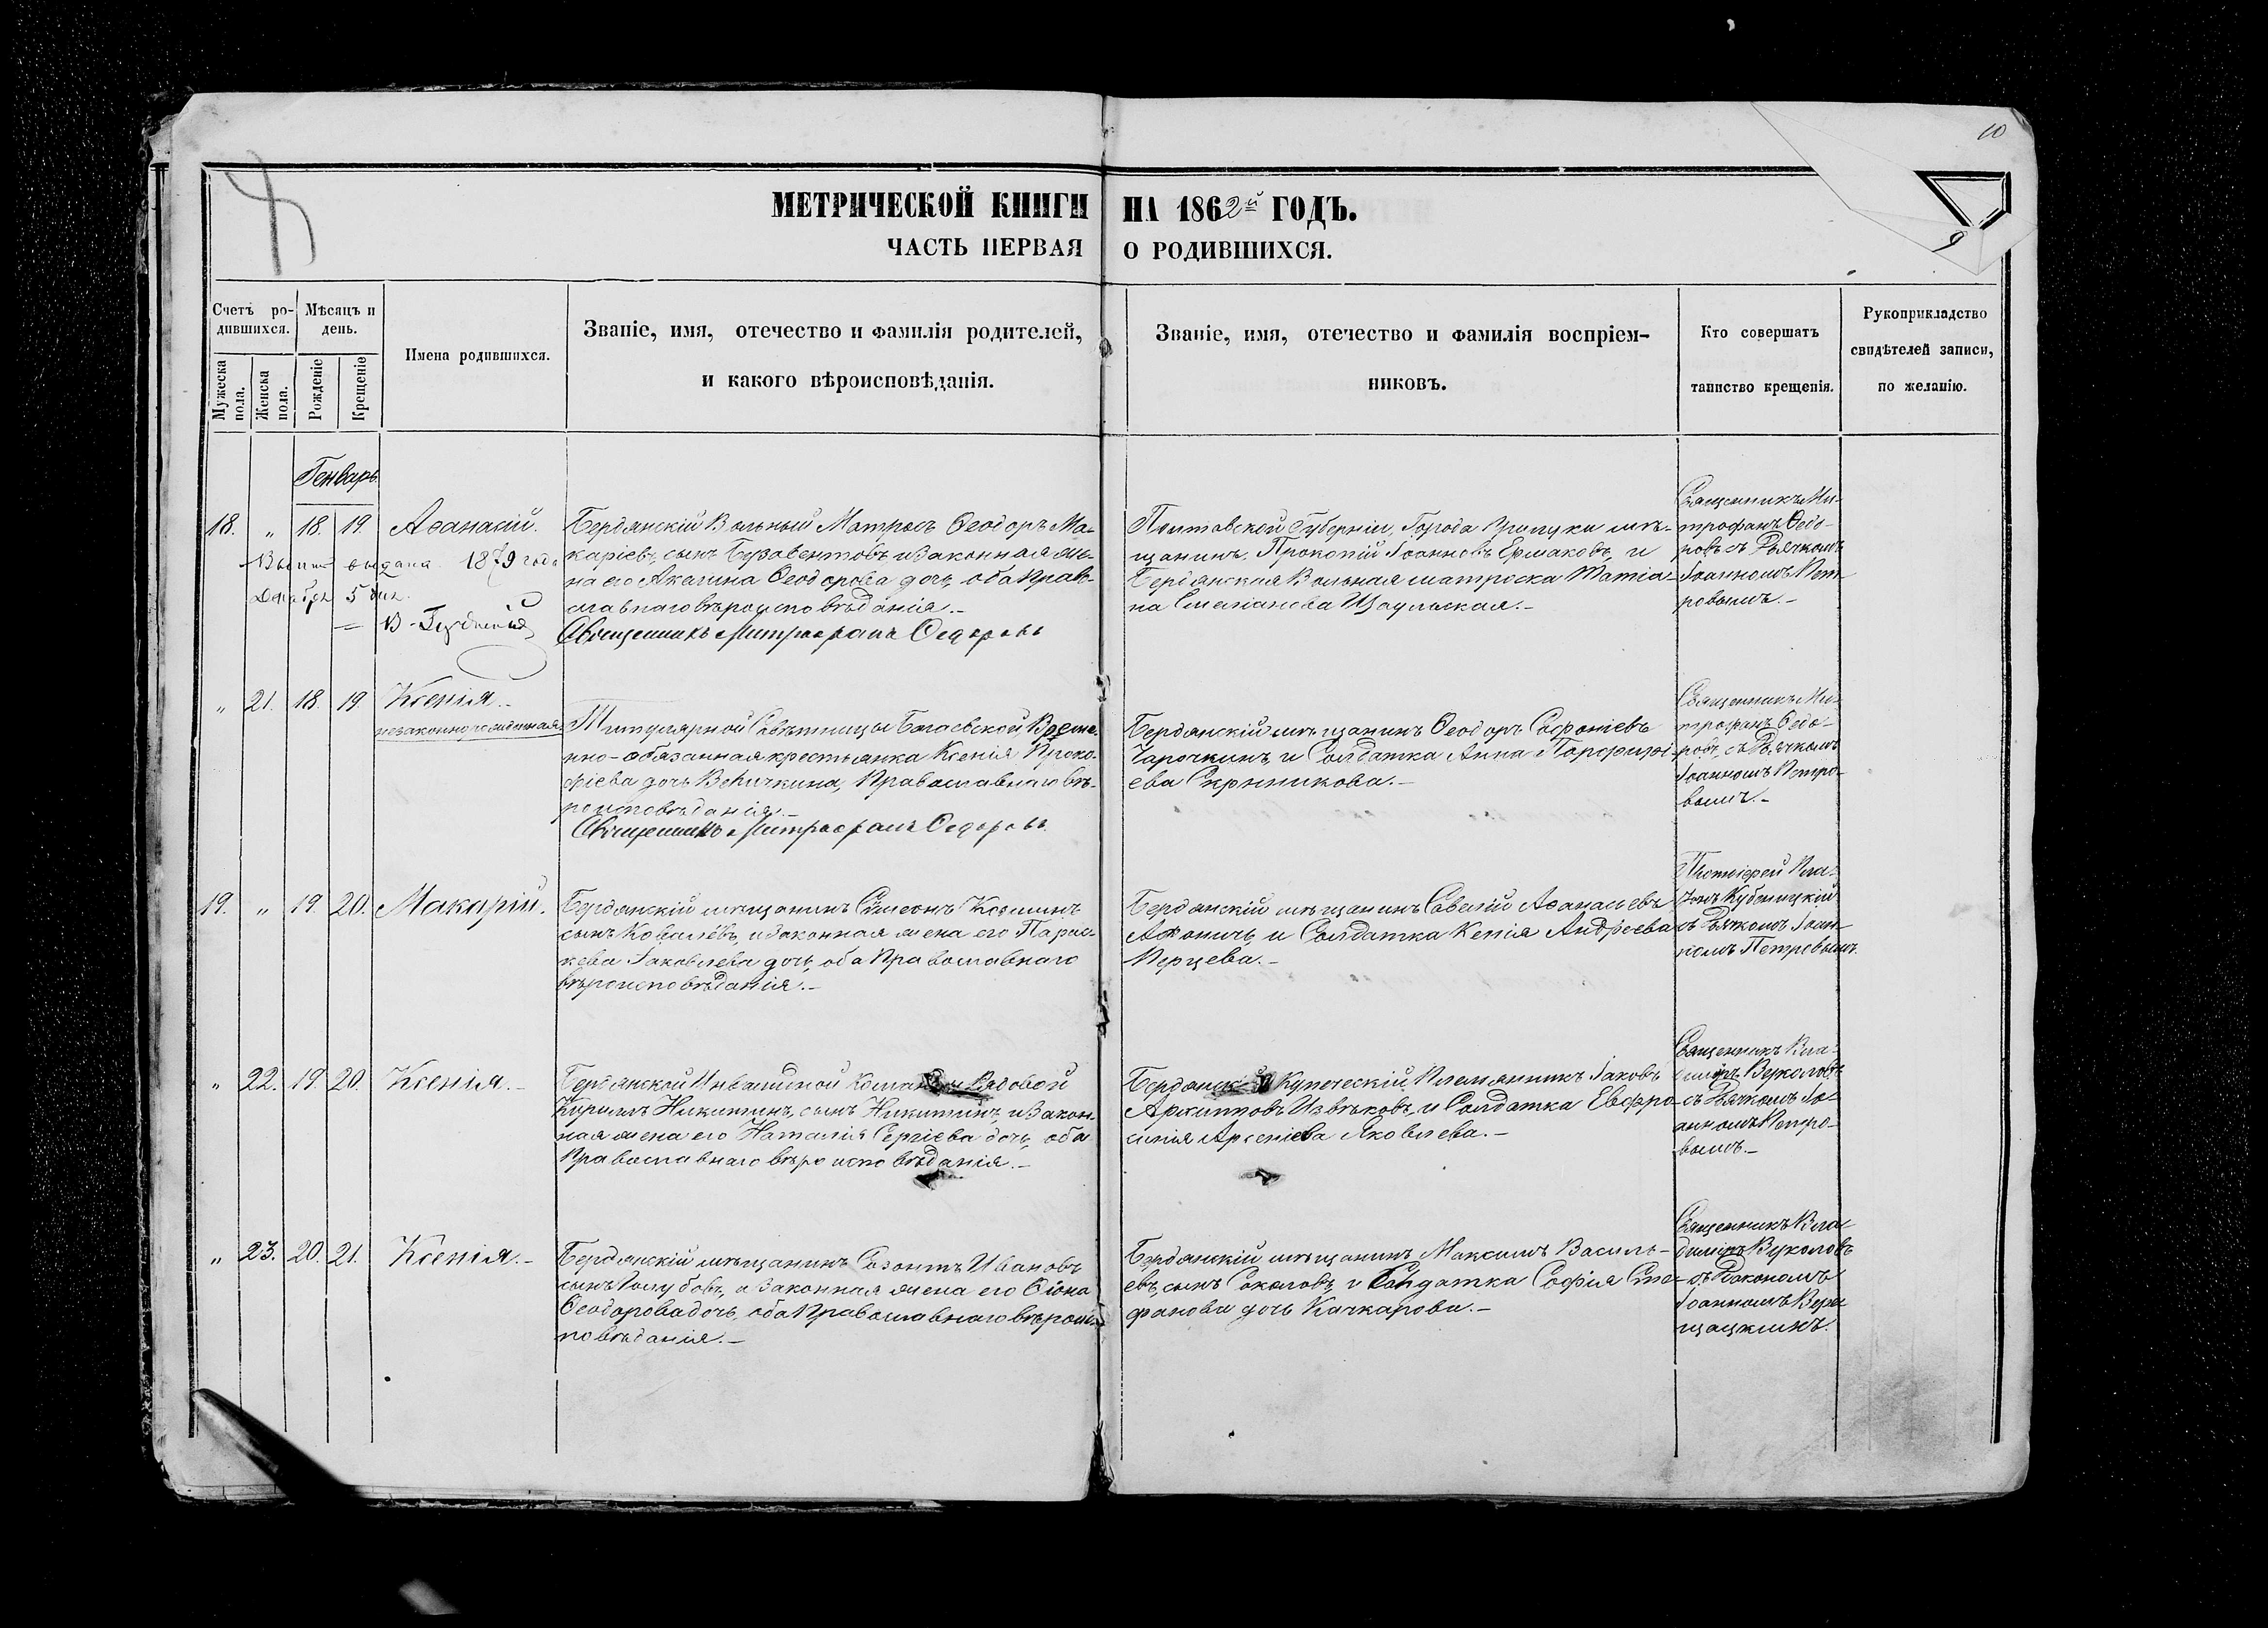 10
МЕТРИЧЕСКОЙ КНИГИ НА 1862й ГОДЪ.
ЧАСТЬ ПЕРВАЯ О РОДИВШИХСЯ.
9
Счетъ ро-
дившихся.
Мужеска пола.
Женска пола.
Мѣсяцъ и
день.
Рожденіе
Крещеніе
Имена родившихся.
Званіе, имя, отечество и фамилія родителей,
и какого вѣроисповѣданія.
Званіе, имя, отечество и фамилія воспріем-
никовъ.
Кто совершатъ
таинство крещенія.
Рукоприкладство
свидѣтелей записи,
по желанію.
Генварь
18. " 18. 19. Аѳанасій.
выдана 1879 года
Декабря 5 дня.
Бердянскій Вольный Матросъ Ѳеодоръ Ма-
каріевъ, сынъ Безавентовъ, и законная же-
на его Акилина Ѳеодорова дочь, оба Право-
славнаго вѣроисповѣданія.-
Священникъ Митрофанъ Ѳедоровъ
Полтавской Губерніи, Города Прилуки мѣ-
щанинъ, Прокопій Іоанновъ Ермаковъ, и
Бердянская Вольная матроска Татіа-
на Стефанова
Священникъ Ми-
трофанъ Ѳедо-
ровъ съ Дьячкомъ
Іоанномъ Пет-
ровымъ.-
" 21. 18. 19 Ксенія.-
незаконнорожденная
Титулярной Совѣтницы Времен-
но-обязанная крестьянка Ксенія Проко-
фіева дочь Величкина, Православнаго вѣ-
роисповѣданія.-
Священникъ Митрофанъ Ѳедоровъ
Бердянскій мѣщанинъ Ѳеодоръ Софоніевъ
Чарочкинъ, и Солдатка Анна Порфирі-
ева Скрынникова.-
Священникъ Ми-
трофанъ Ѳедо-
ровъ, съ Дьячкомъ
Іоанномъ Петро-
вымъ.-
19. " 19. 20. Макарій.
Бердянскій мѣщанинъ Сѵмеонъ Козминъ
сынъ Ковалёвъ, и законная жена его Парас-
кева Іаковлева дочь, оба Православнаго
вѣроисповѣданія.-
Бердянскій мѣщанинъ Савелій Аѳанасьевъ
Афоничь, и Солдатка Ксенія Андреева
Перцева.-
Протоіерей
съ Дьячкомъ Іоан-
номъ Петровымъ.
" 22. 19. 20. Ксенія.-
Бердянской Инвалидной Команды Рядовой
Кириллъ Никитинъ, сынъ Никитинъ, и закон-
ная жена его Наталія Сергіева дочь, оба
Православнаго вѣроисповѣданія.-
Бердянскій Купеческій Племянникъ Іаковъ
Архипповъ Извѣковъ, и Солдатка Евфро-
синія Арсеніева Яковлева.-
Священникъ Вла-
диміръ Вуколовъ
съ Дьячкомъ Іо-
анномъ Петро-
вымъ.-
" 23. 20. 21. Ксенія.-
Бердянскій мѣщанинъ Созонтъ Ивановъ
сынъ Голубовъ, и законная жена его
Ѳеодорова дочь, оба Православнаго вѣроис-
повѣданія.-
Бердянскій мѣщанинъ Максимъ Василь-
евъ, сынъ Соколовъ, и Солдатка Софія Сте-
фанова дочь Качкарова.-
Священникъ Вла-
диміръ Вуколовъ
съ Діакономъ
Іоанномъ